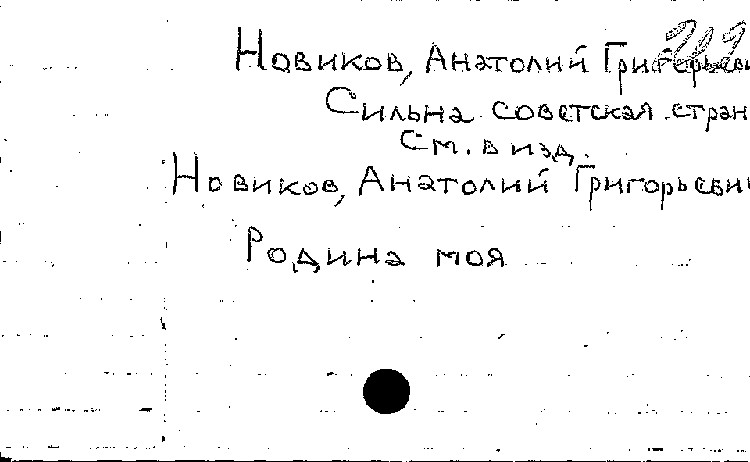 Новиков, Анатолий Григорьеви
Сильна советская стран
См. в изд.
Новиков, Анатолий Григорьеви
Родина моя